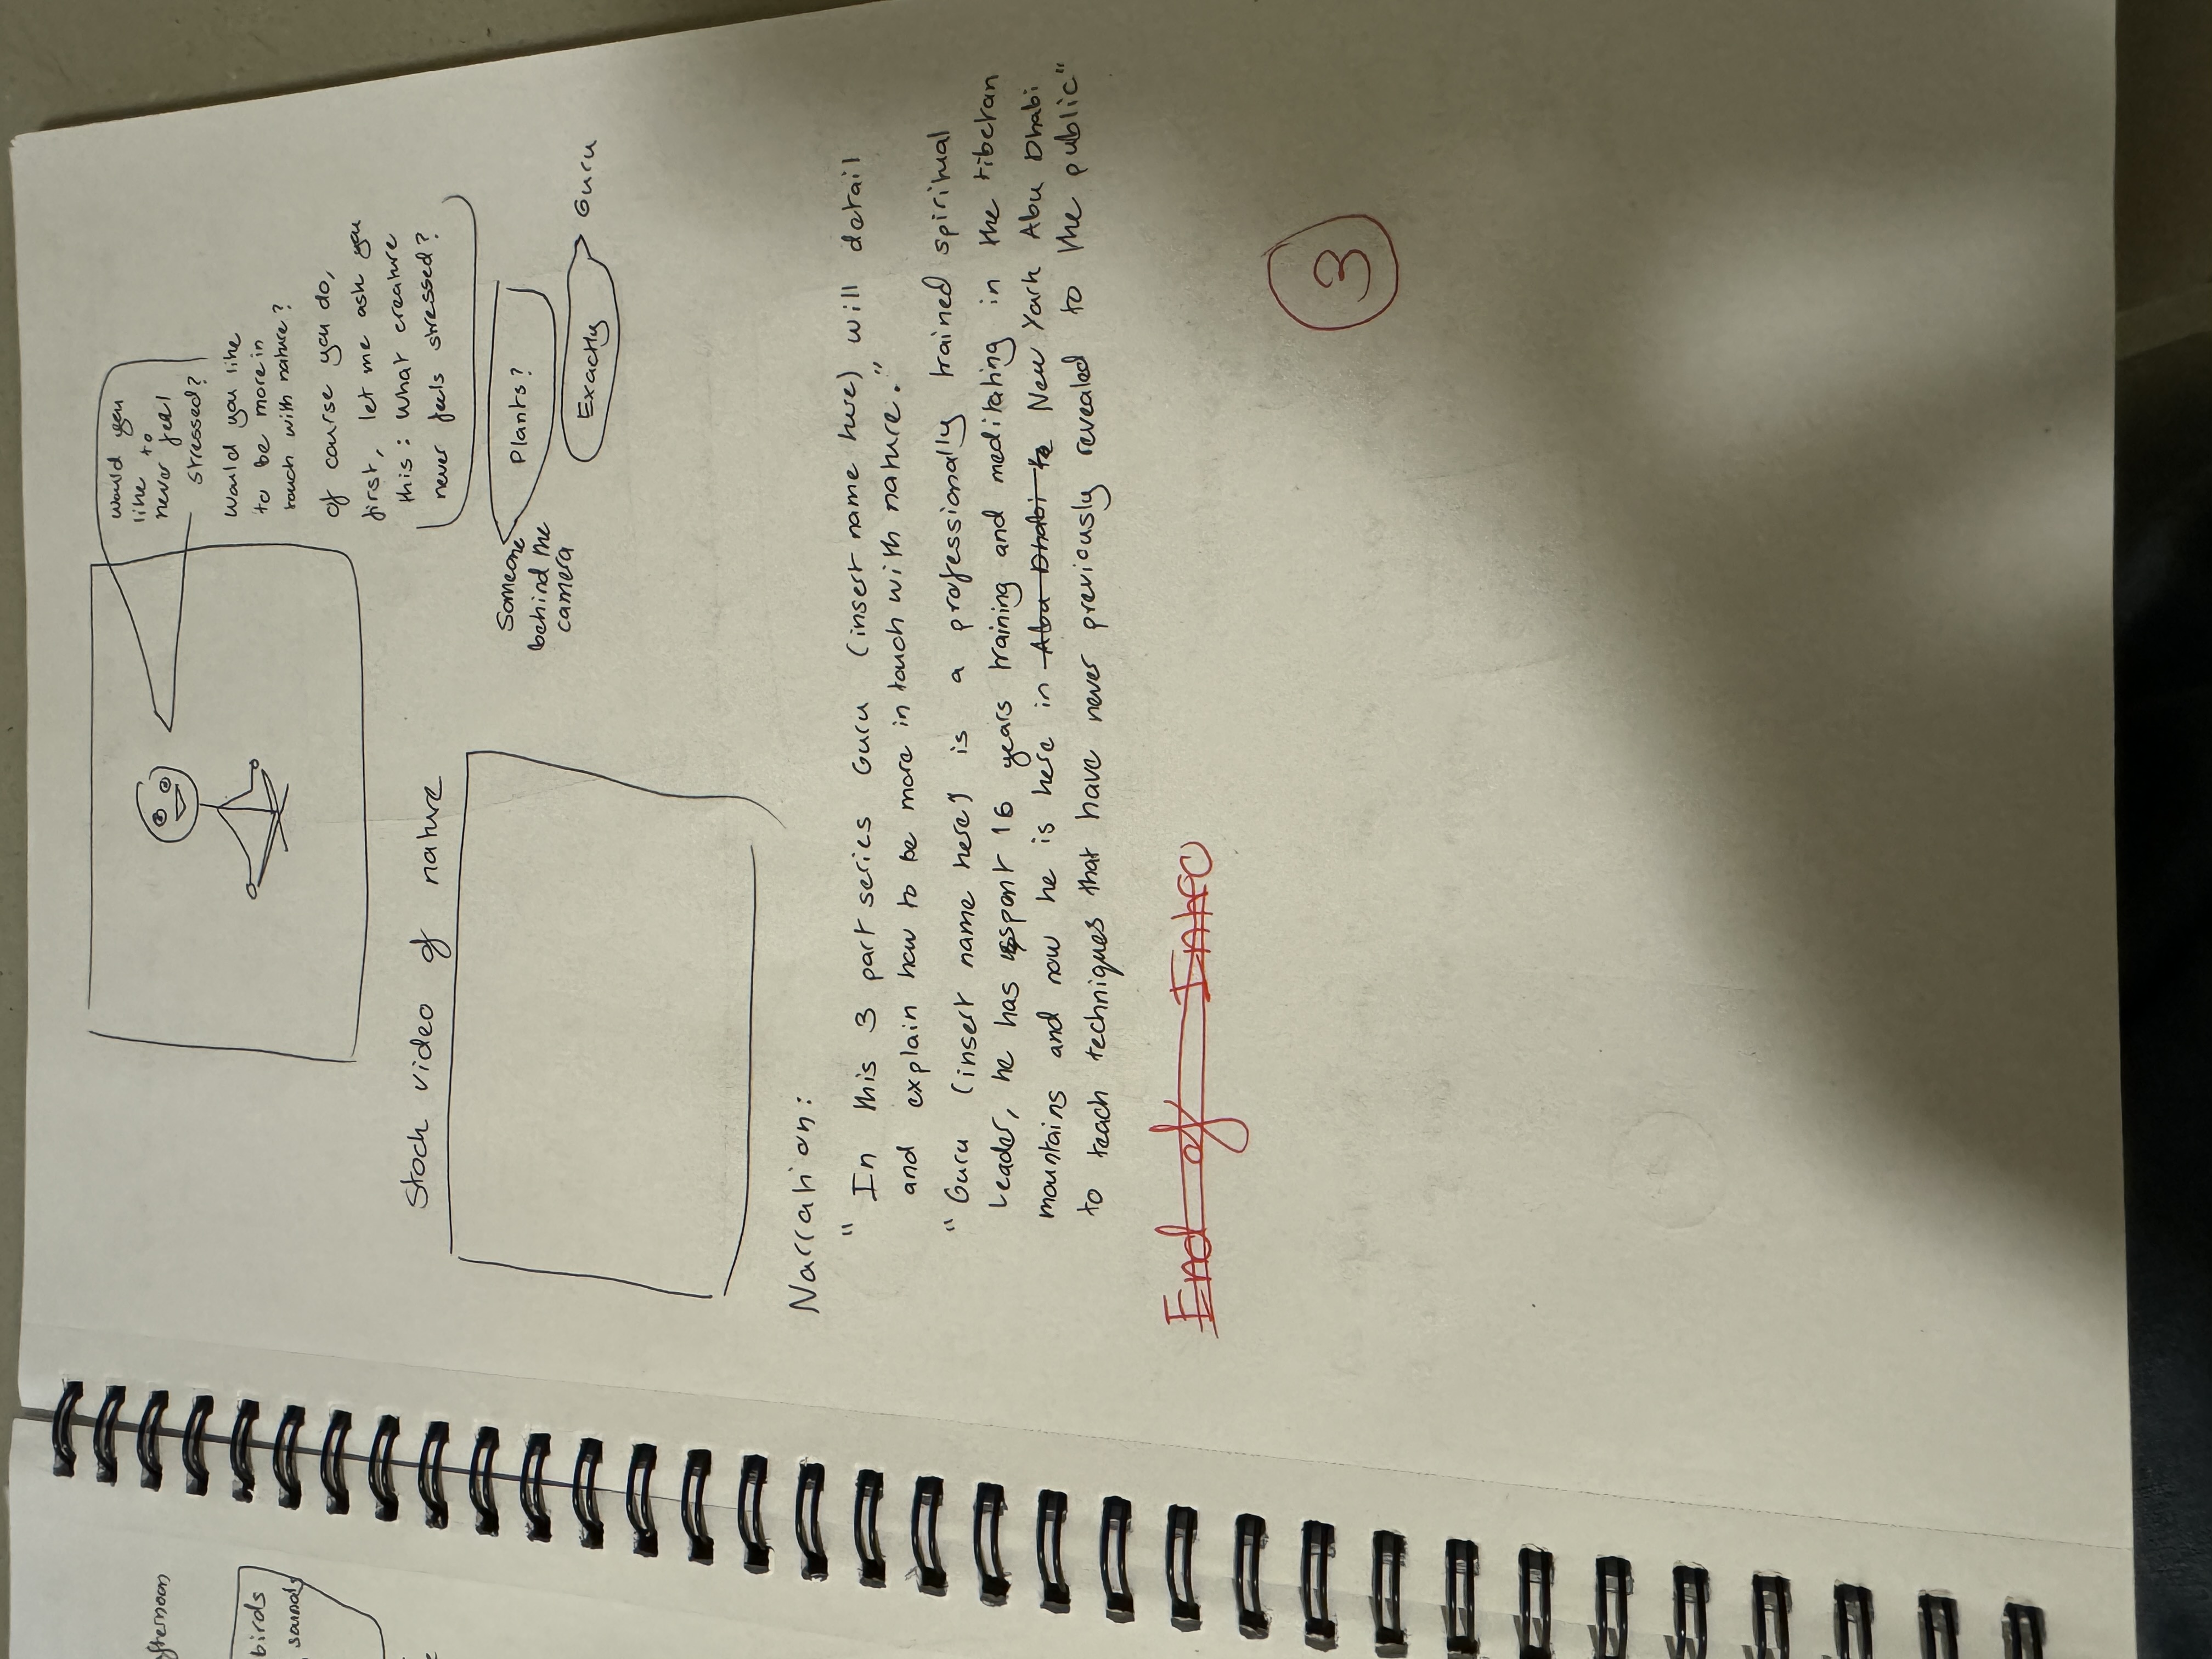 afternoon
birds
sounds
would you
like to
never feel
stressed?
Would you like
to be more in
touch with nature?
of course you do,
first, let me ask you
this: What creature
never feels stressed?
Stock video of nature
Someone
behind the
camera
Plants?
Exactly
Guru
Narration:
" In this 3 part series Guru (insert name here) will detail
and explain how to be more in touch with nature."
" Guru (insert name here) is a professionally trained spiritual
Leader, he has spent 16 years training and meditating in the tibetan
mountains and now he is here in Abu Dhabi to New York Abu Dhabi
to teach techniques that have never previously revealed to the public"
End of Intro
3